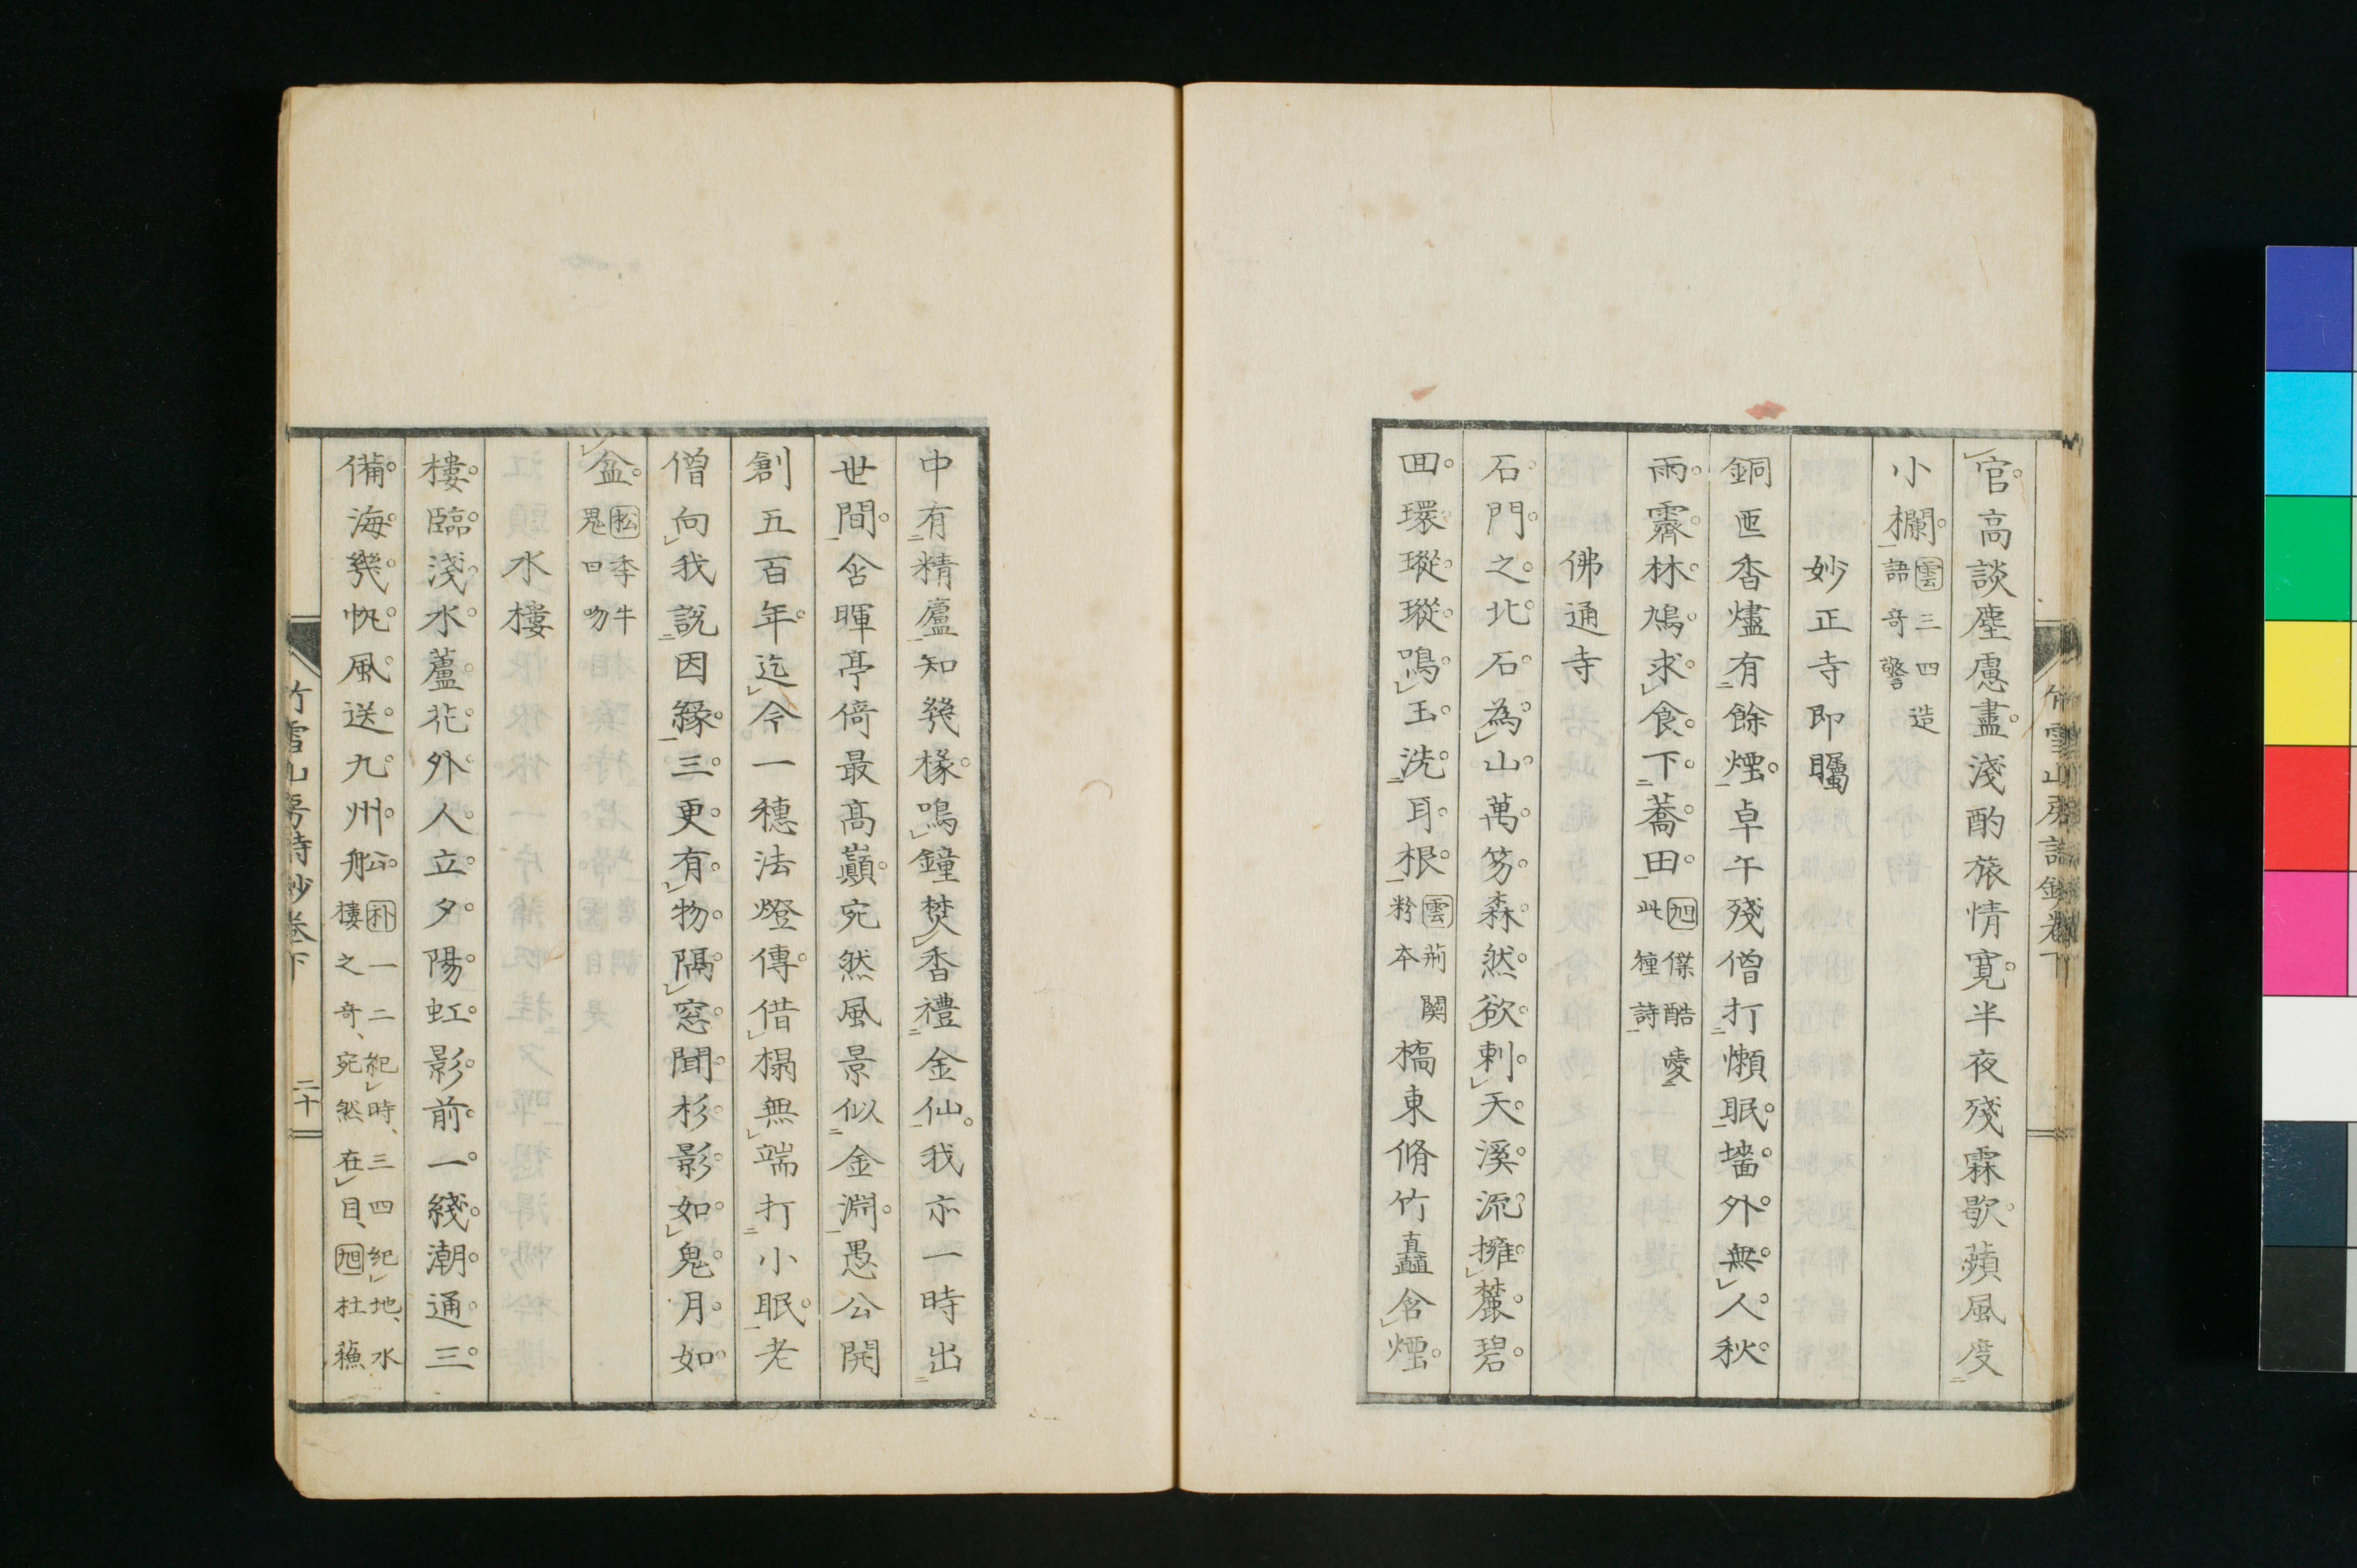 官高談塵慮盡淺酌旅情寛半夜殘霖歇蘋風度
小欄雲三四造
語奇警
妙正寺即矚
銅匜香燼有餘煙卓午殘僧打懶眠墻外無人秋
雨霽林鳩求食下蕎田旭僕酷愛
此種詩
佛通寺
石門之北石為山萬笏森然欲刺天溪流擁麓碧
回環瑽瑽鳴玉洗耳根雲荊関
粉本
橋東脩竹矗含煙
竹雪山房詩鈔卷下
中有精廬知幾椽鳴鐘焚香禮金仙我亦一時出
世間含暉亭倚最高巓宛然風景似金淵愚公開
創五百年迄今一穗法燈傳借榻無端打小眠老
僧向我説因縁三更有物隔窓聞杉影如鬼月如
盆松季牛
鬼口吻
水樓
樓臨淺水蘆花外人立夕陽虹影前一綫潮通三
備海幾帆風送九州船朴一二紀時、三四紀地、水
樓之奇、宛然在目、旭杜蘓
竹雪山房詩鈔卷下
二十